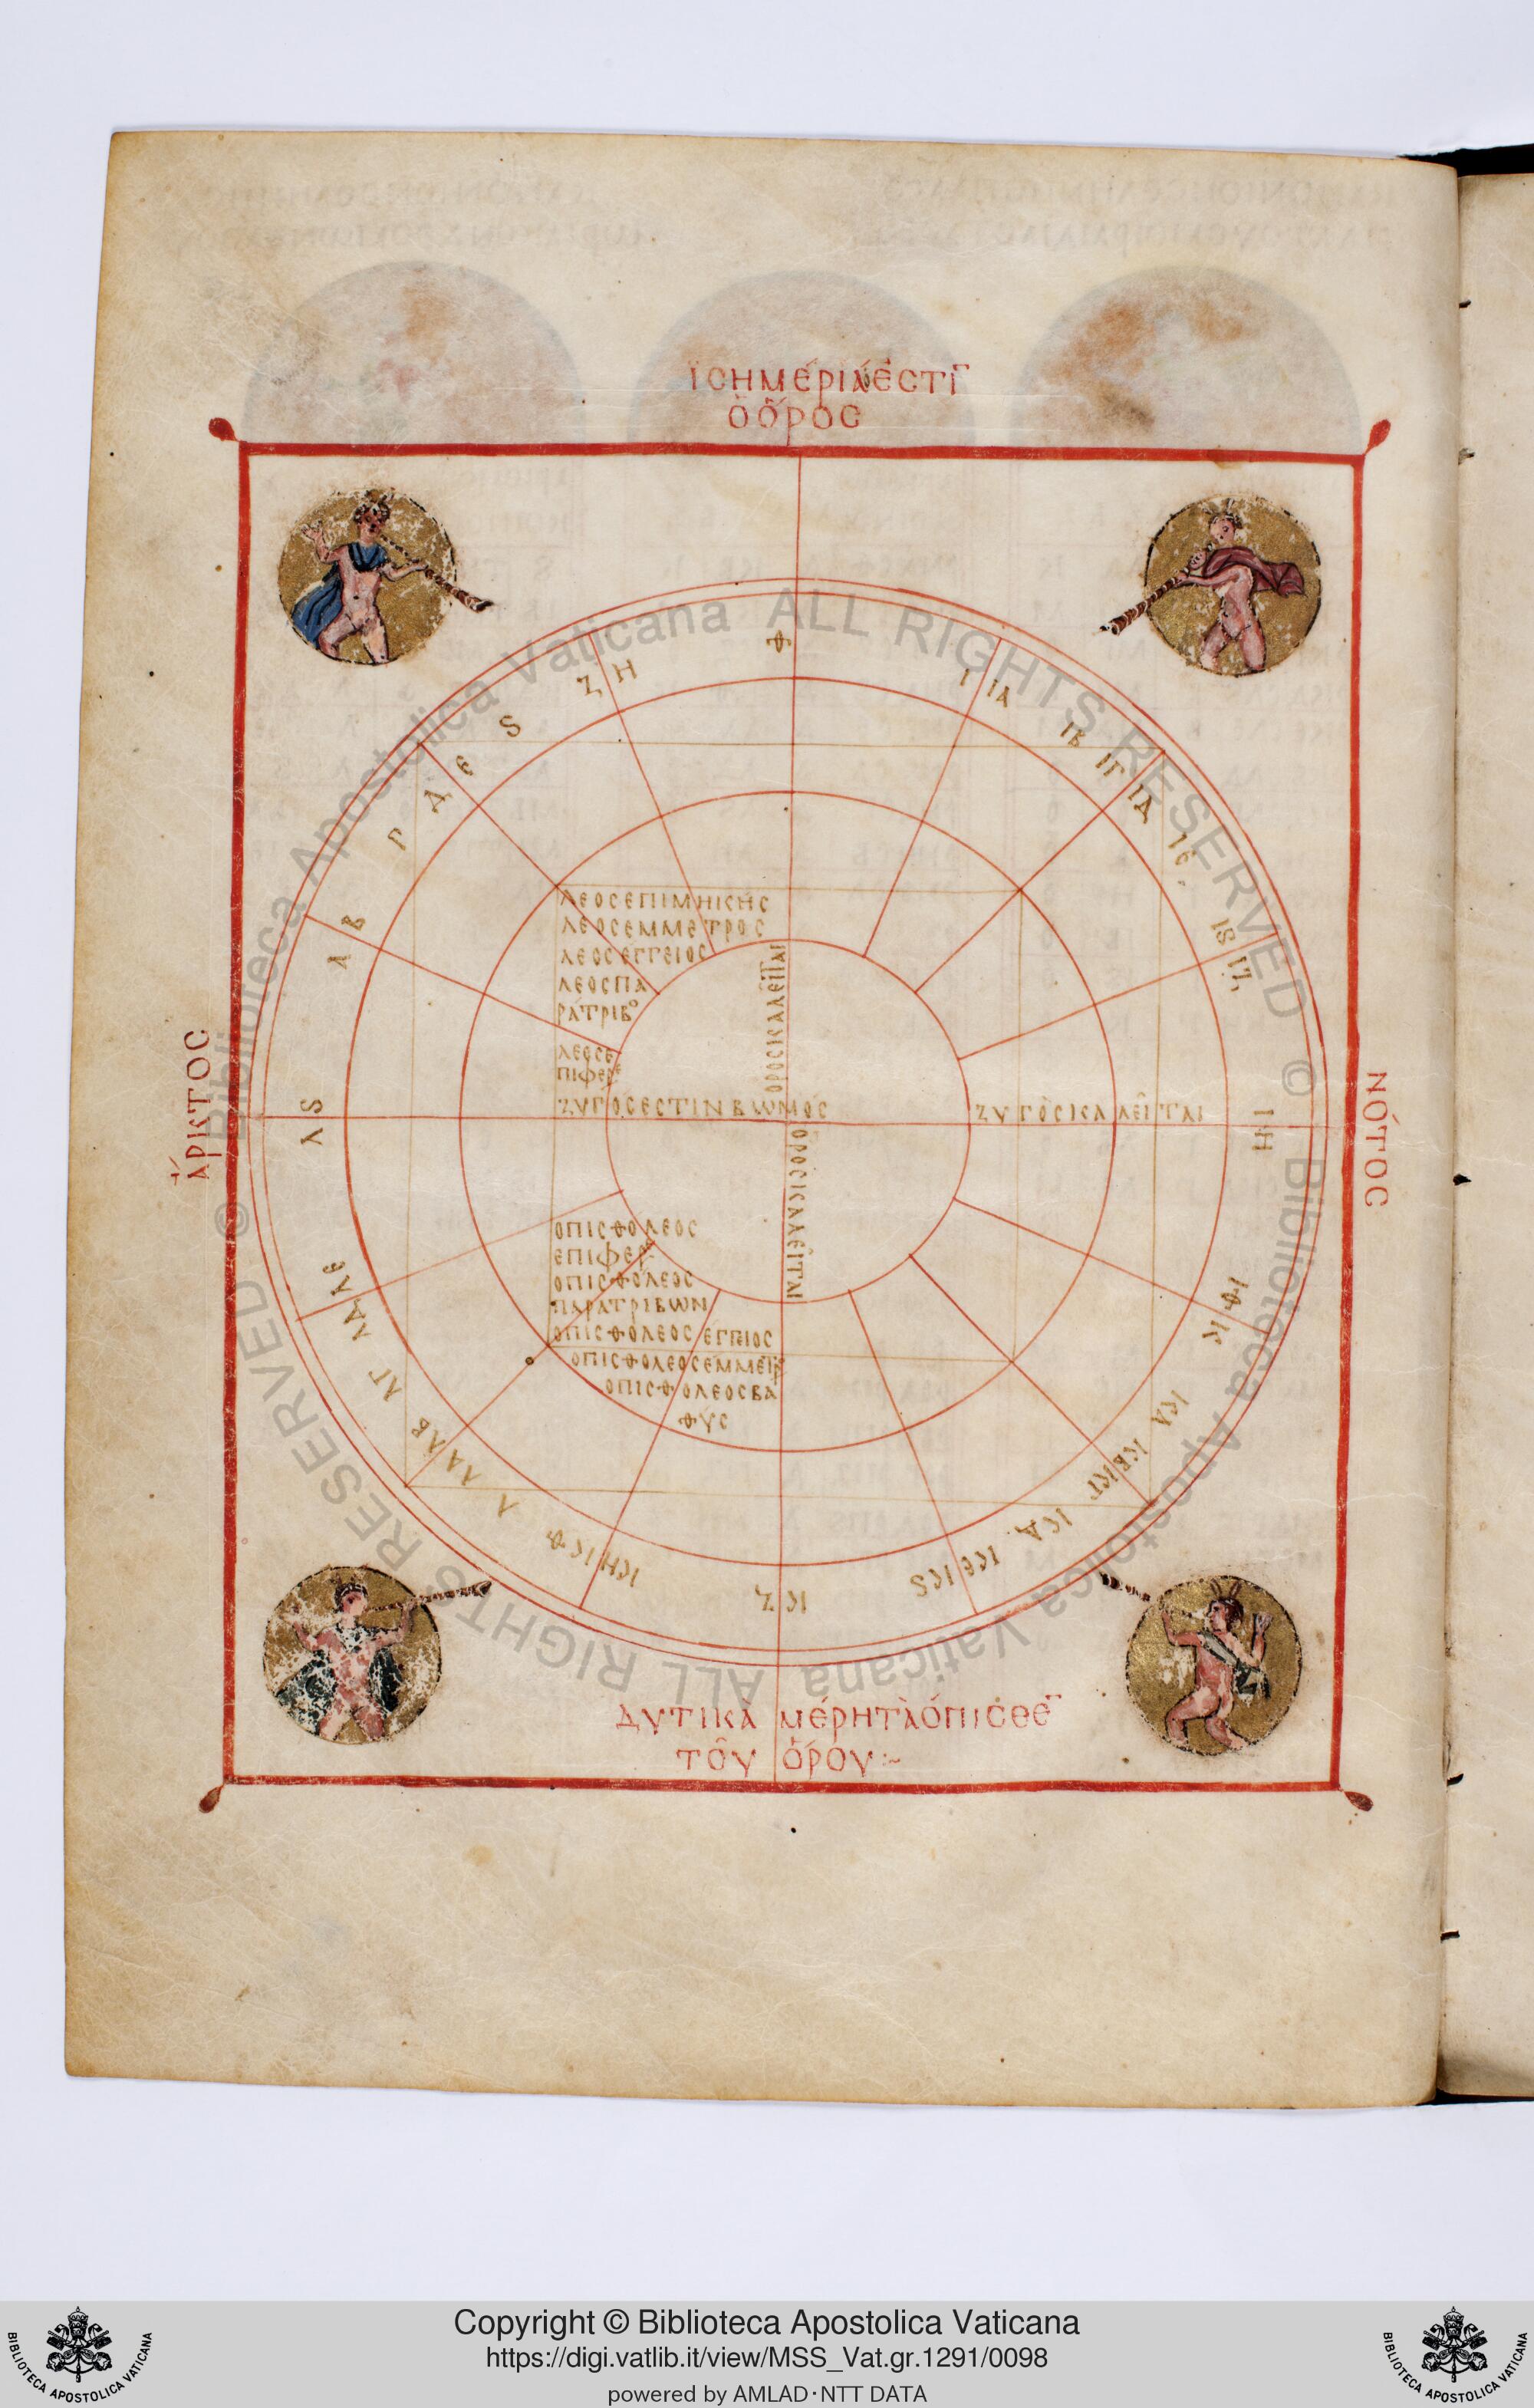 ΙΣΗΜΕΡΙΑ ΕΣΤΙ
Ὁ ὍΡΟΣ
Ζ Η Θ Ι ΙΑ
Ϛ ΙΒ
Ε ΙΓ
Δ ΙΔ
Γ ΙΕ
Β ΙϚ
Α ΙΖ
ΛΕΟΣ ΕΠΙΜΗΚΗΣ
ΛΕΟΣ ΕΜΜΕΤΡΟΣ
ΛΕΟΣ ΕΓΓΕΙΟΣ
ΛΕΟΣ ΠΑ
ΡΑΤΡΙΒο
ΛΕΟΣ Ε
ΠΙΦΕΡε
ΟΡΟΣ ΚΑΛΕΙΤΑΙ
ΖΥΓΟΣ ΕΣΤΙΝ ΒΩΜΟΣ
ΖΥΓΟΣ ΚΑΛΕΙΤΑΙ
ΟΡΟΣ ΚΑΛΕΙΤΑΙ
ἌΡΚΤΟΣ
ΝΌΤΟΣ
ΛϚ
ΙΗ
ΟΠΙΣΘΟΛΕΟΣ
ΕΠΙΦΕΡ
ΟΠΙΣΘΟΛΕΟΣ
ΠΑΡΑΤΡΙΒΩΝ
ΟΠΙΣΘΟΛΕΟΣ ΕΓΓΕΙΟΣ
ΟΠΙΣΘΟΛΕΟΣ ΕΜΜΕΤΡ
ΟΠΙΣΘΟΛΕΟΣ ΒΑ
ΘΥΣ
ΛΕ ΙΘ
ΛΔ Κ
ΛΓ ΚΑ
ΛΒ ΚΒ
ΛΑ ΚΓ
Λ ΚΔ
ΚΘ ΚΕ
ΚΗ ΚΖ ΚϚ
ΔΥΤΙΚᾺ ΜΈΡΗ ΤᾺ ὌΠΙΣΘΕ
ΤΟΥ͂ ὍΡΟΥ :~
© Biblioteca Apostolica Vaticana ALL RIGHTS RESERVED © Biblioteca Apostolica Vaticana ALL RIGHTS RESERVED
Copyright © Biblioteca Apostolica Vaticana
https://digi.vatlib.it/view/MSS_Vat.gr.1291/0098
powered by AMLAD·NTT DATA
BIBLIOTECA APOSTOLICA VATICANA
BIBLIOTECA APOSTOLICA VATICANA